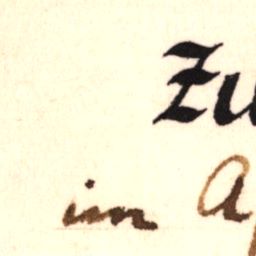 Zu
im Ap